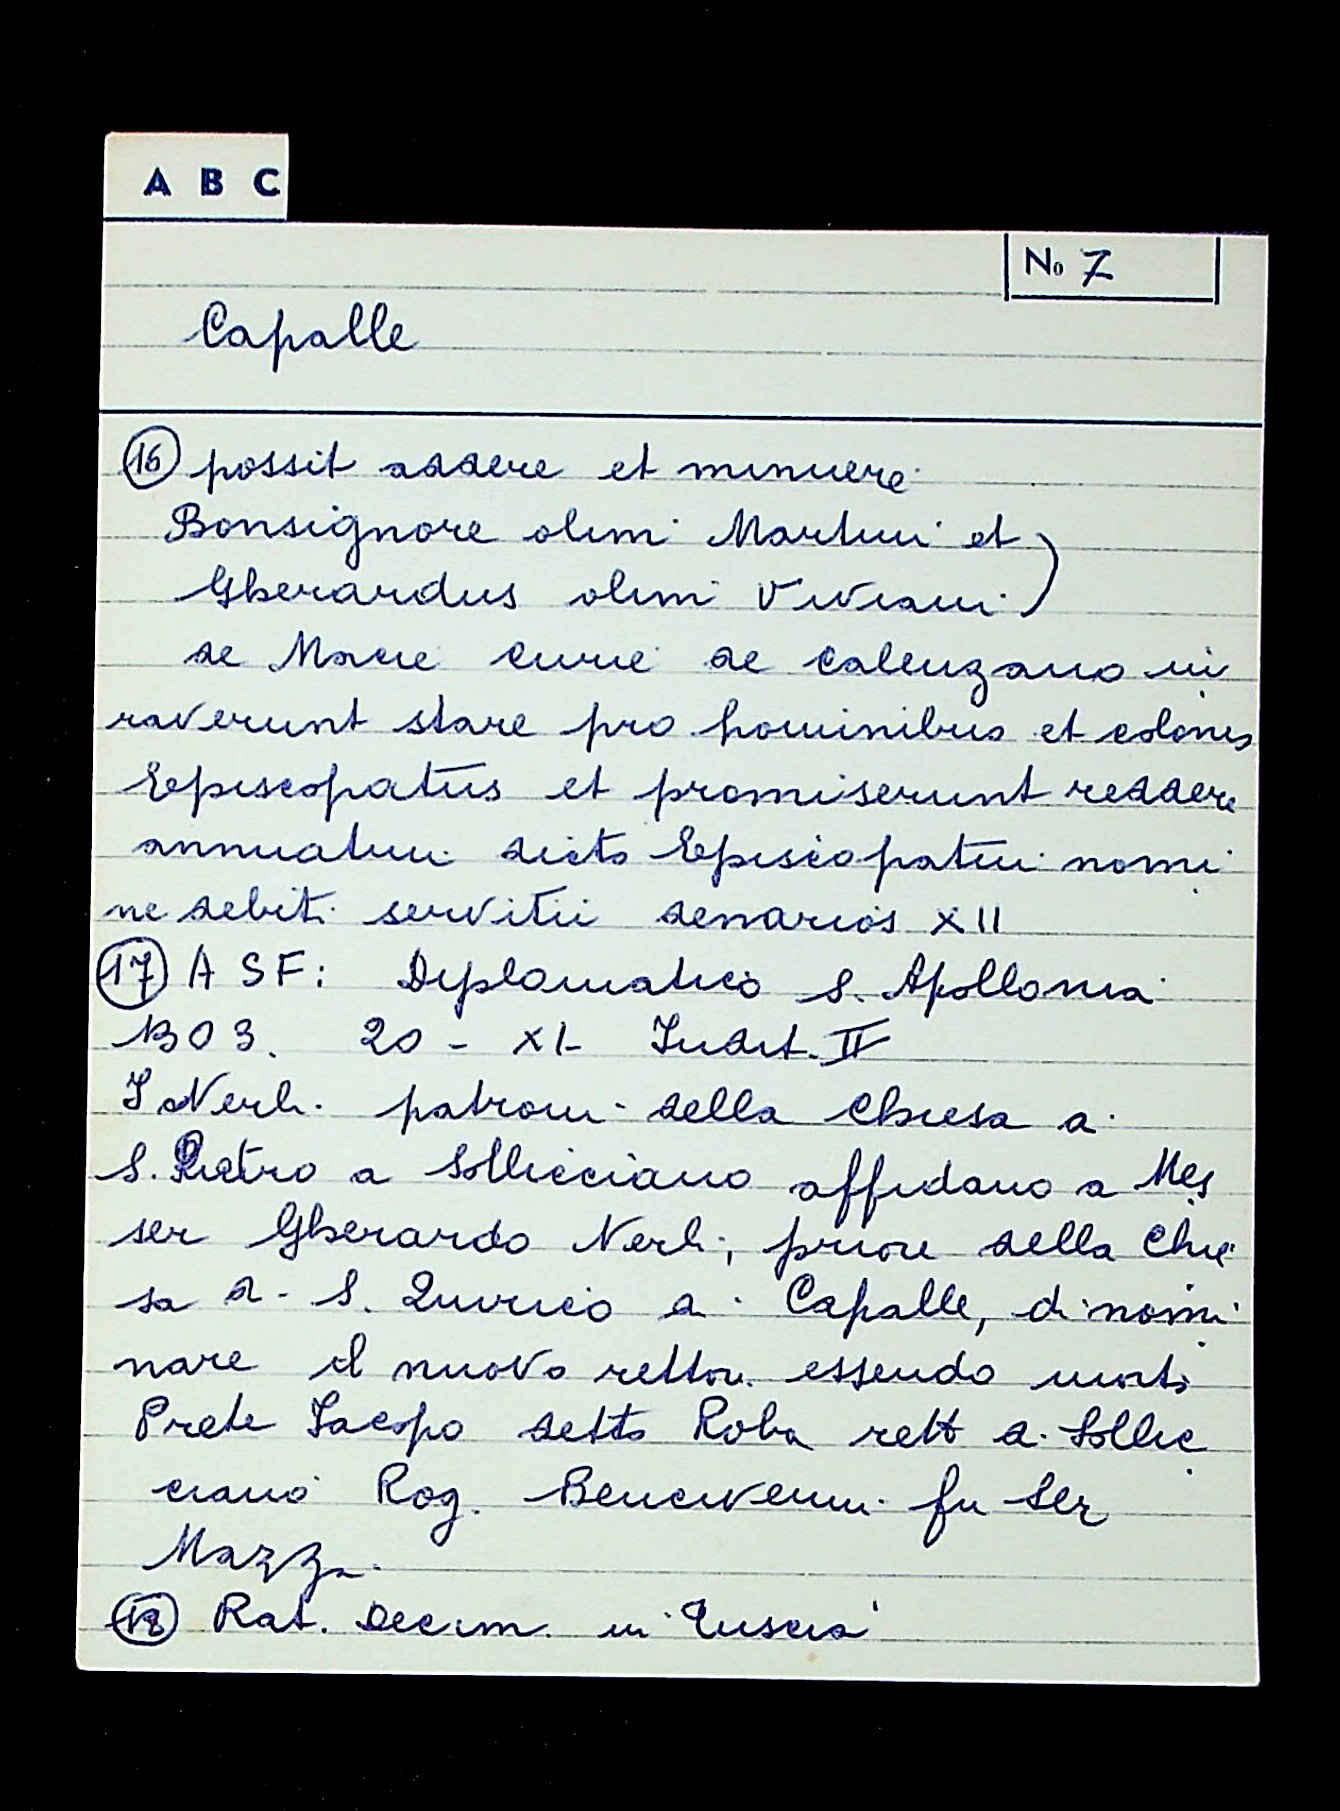 A B C
No 7
Capalle
16 possit addere et minuere
Bonsignore olim Martini et )
Gherardus olim Viviani )
de Macie curie de Calenzano iu
raverunt stare pro hominibus et colonis
Episcopatus et promiserunt reddere
annuatim dicto Episcopatui nomi
ne debiti servitii denarios XII
17 A S F: Diplomatico S. Apollonia
1303. 20 - XI- Indit. II
I Nerli patroni della Chiesa di
S. Pietro a Sollicciano affidano a Mes
ser Gherardo Nerli, priore della Chie
sa di S. Quirico a Capalle, di nomi
nare il nuovo rettore essendo morto
Prete Iacopo detto Roba rett di Sollic
ciano Rog. Bencivenni fu Ser
Mazza
18 Rat. Decim. in Tuscia